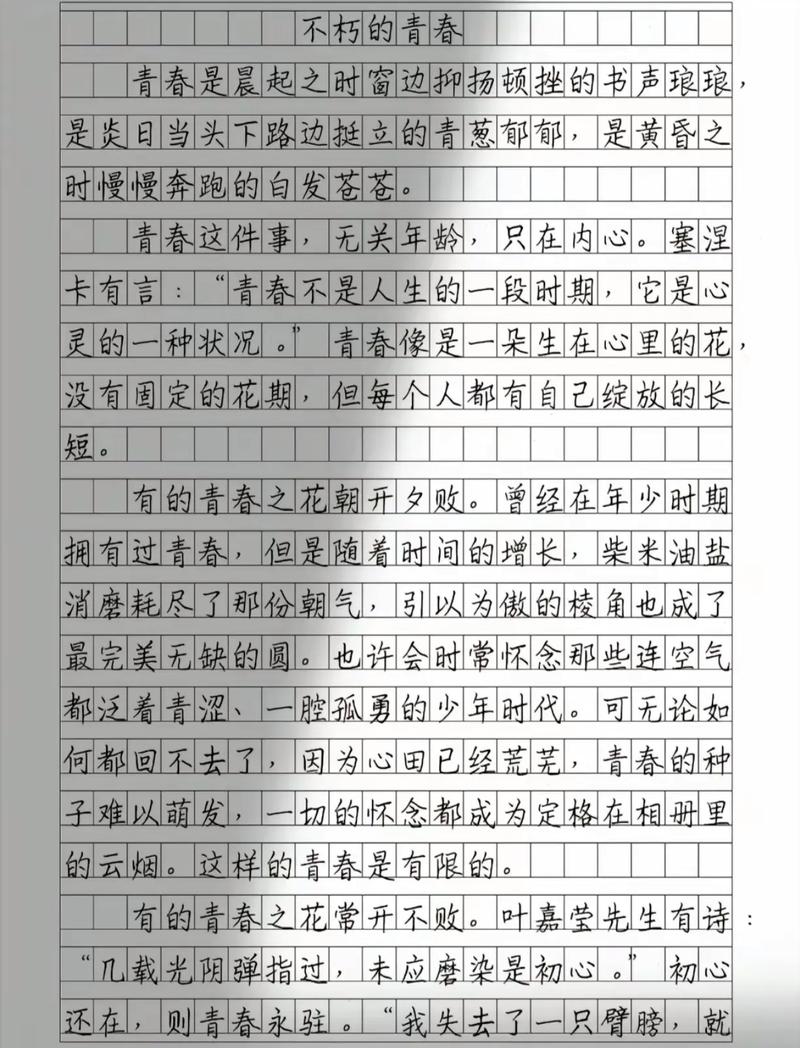 不朽的青春
青春是晨起之时窗边抑扬顿挫的书声琅琅，
是炎日当头下路边挺立的青葱郁郁，是黄昏之
时慢慢奔跑的白发苍苍。
青春这件事，无关年龄，只在内心。塞涅
卡有言：“青春不是人生的一段时期，它是心
灵的一种状况。”青春像是一朵生在心里的花，
没有固定的花期，但每个人都有自己绽放的长
短。
有的青春之花朝开夕败。曾经在年少时期
拥有过青春，但是随着时间的增长，柴米油盐
消磨耗尽了那份朝气，引以为傲的棱角也成了
最完美无缺的圆。也许会时常怀念那些连空气
都泛着青涩、一腔孤勇的少年时代。可无论如
何都回不去了，因为心田已经荒芜，青春的种
子难以萌发，一切的怀念都成为定格在相册里
的云烟。这样的青春是有限的。
有的青春之花常开不败。叶嘉莹先生有诗：
“几载光阴弹指过，未应磨染是初心。”初心
还在，则青春永驻。“我失去了一只臂膀，就